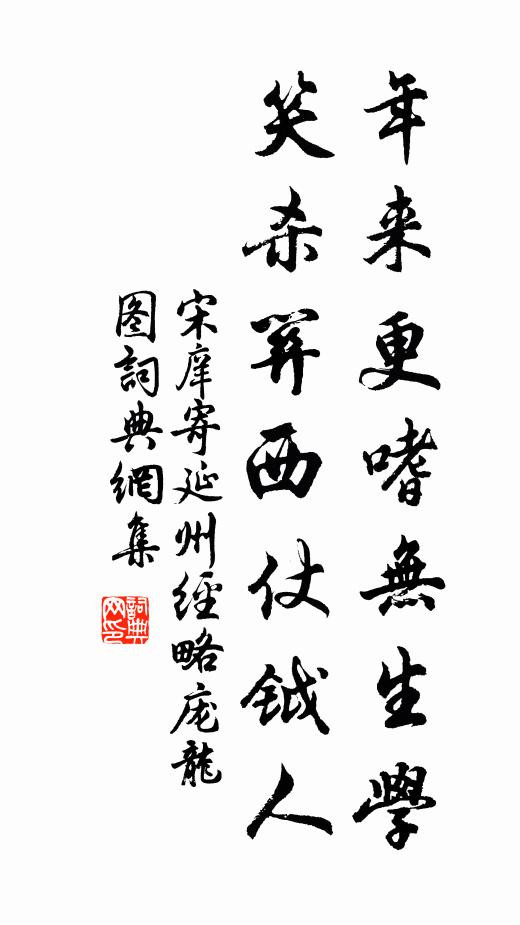 年来更嗜無生學
笑杀關西仗鉞人
宋庠寄延州經略庞龍
图詞典網集
詞典
网印